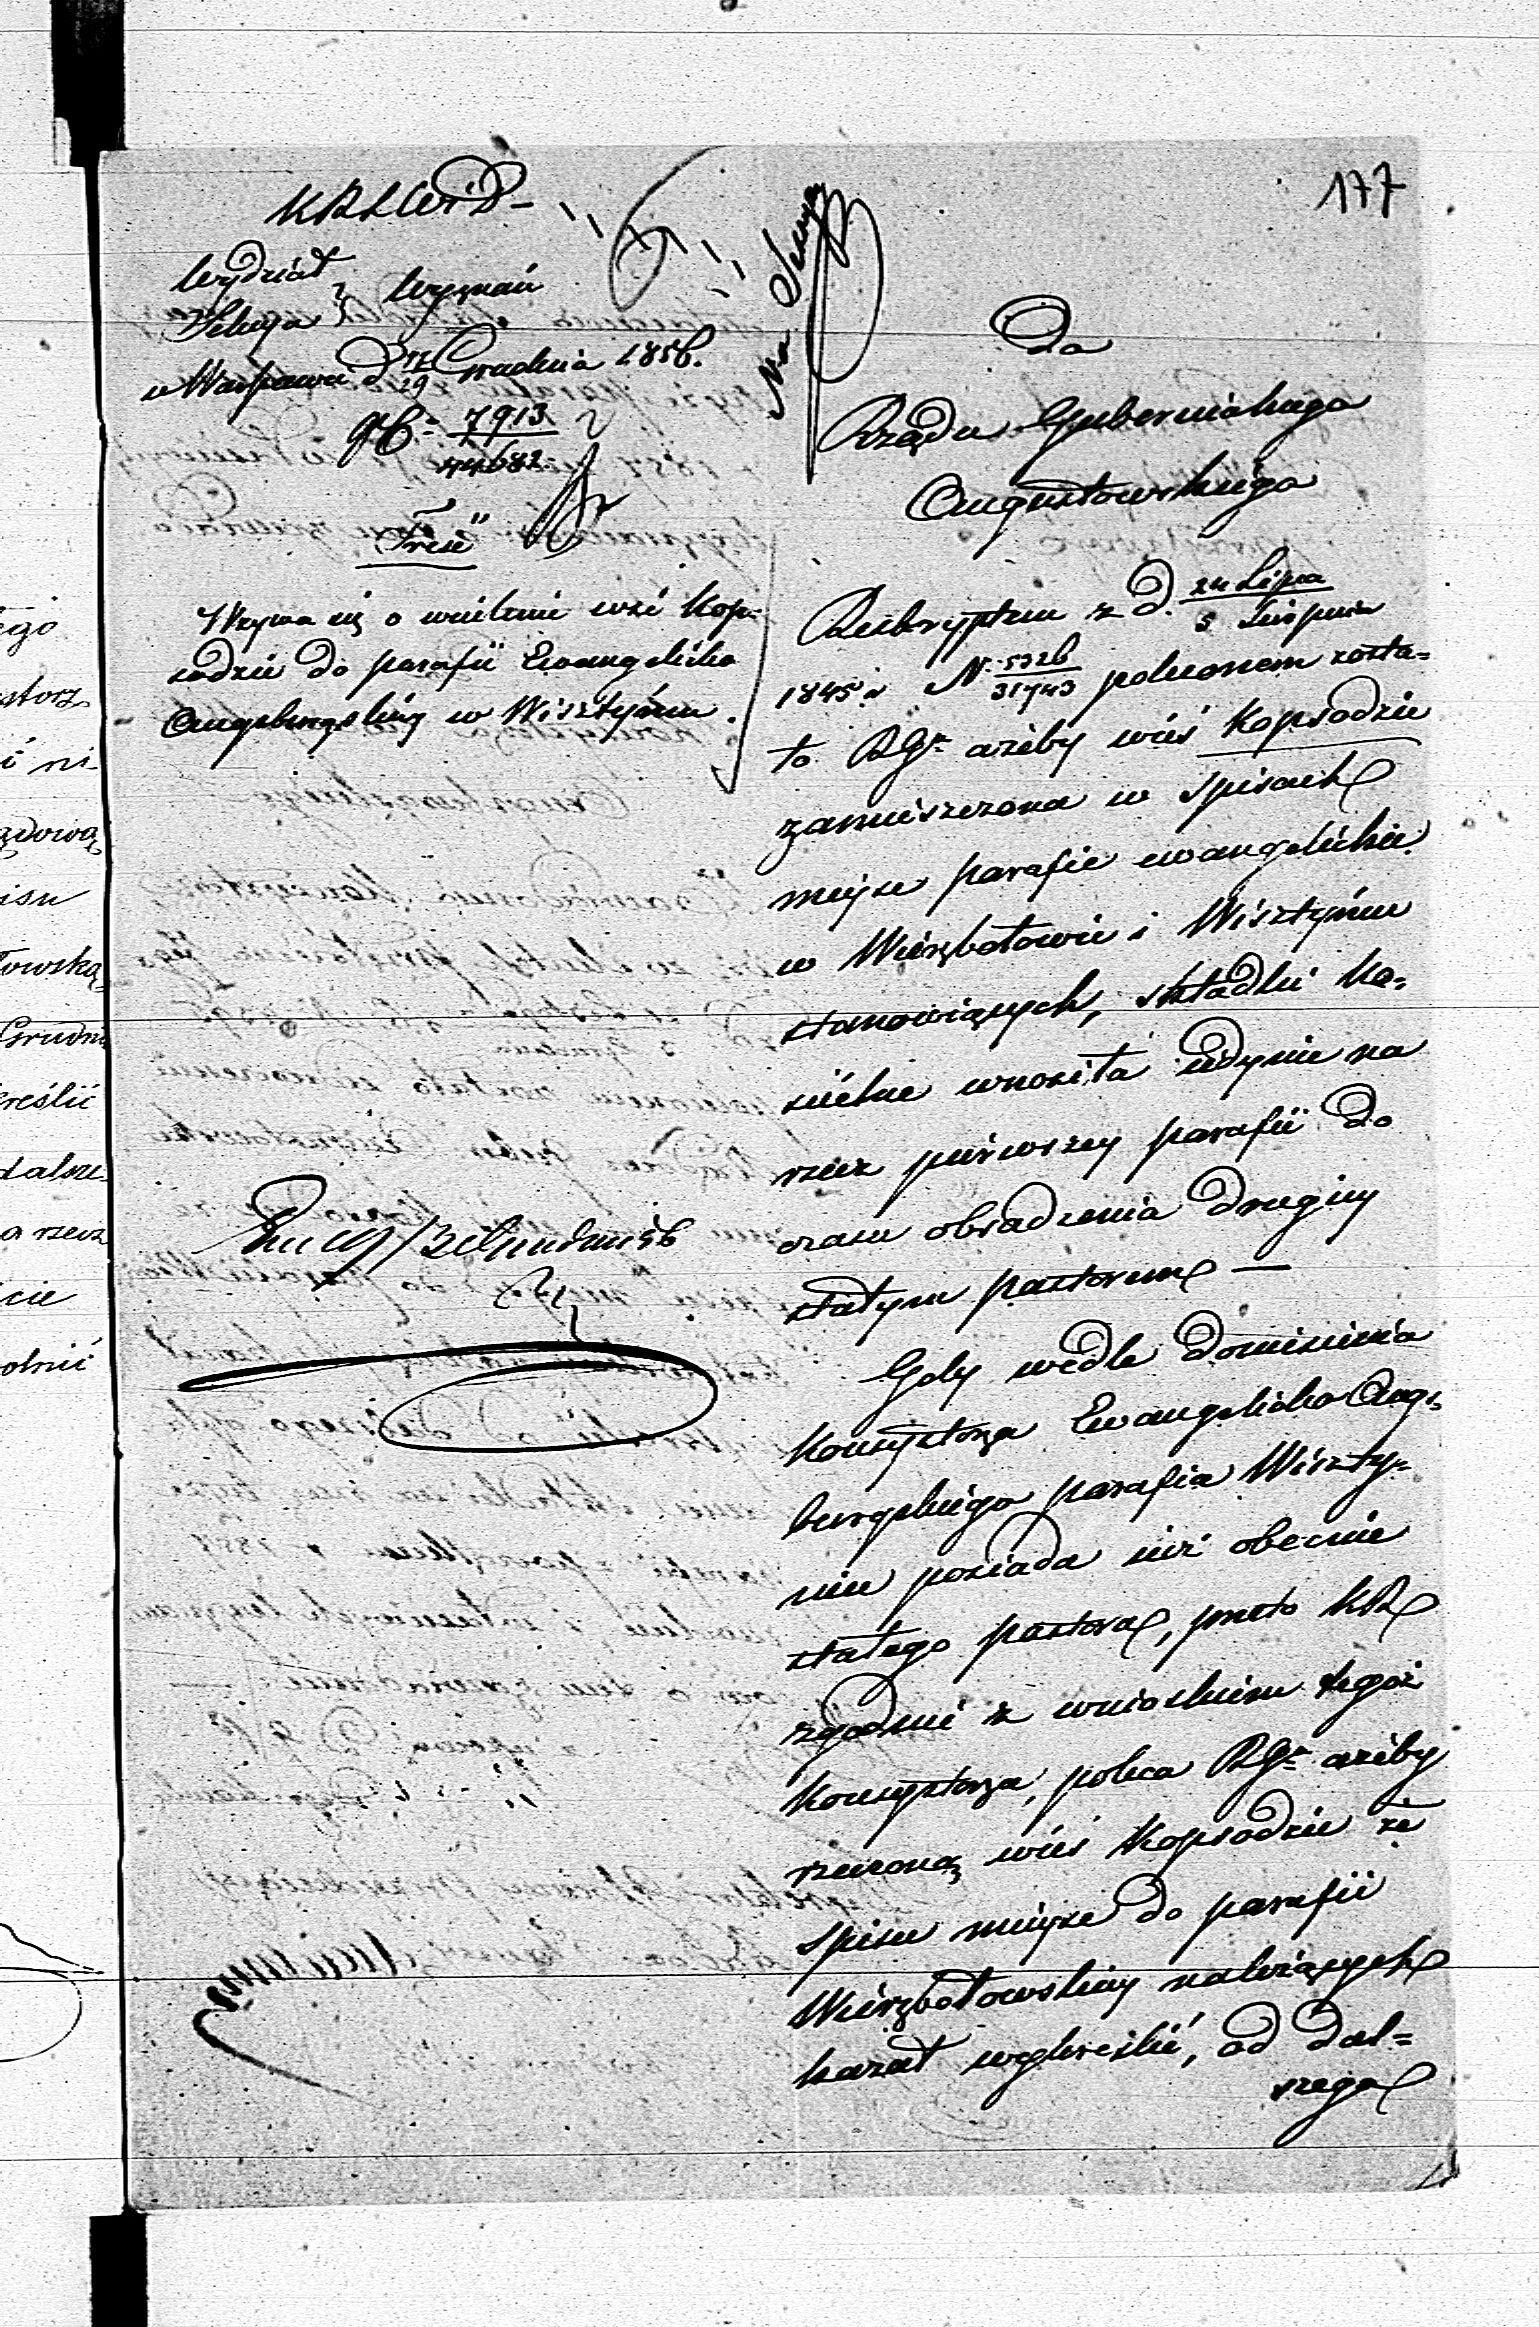 177
KRSWiD
Wydział Wyznań
Sekcya
w Warszawie d. 17/29 Grudnia 1856.
N. 7913/44682
Treść
Wzywa się o wcielenie wsi Kop-
sodzie do parafii Ewangelicko
Augsburgskiéj w Wisztyńcu.
Do
Rządu Gubernialnego
Augustowskiego
Reskryptem z d. 24 Lipca/5 Sierpnia
1845 r. N. 5326/31743 poleconem zosta-
ło RGu ażeby wieś Kopsodzie
zamieszczona w spisach
miejsc parafie ewangelickie
w Wierzbołowie i Wisztyńcu
stanowiących, składki ko-
ścielne wnosiła jedynie na
rzecz pierwszey parafii do
czasu obsadzenia drugiey
stałym pastorem —
Gdy wedle doniesienia
Konsystorza Ewangelicko Augs-
burgskiego parafia Wiszty-
niec posiada już obecnie
stałego pastora, przeto KR
zgodnie z wnioskiem tegoż
Konsystorza, poleca RGu ażeby
rzeczoną wieś Kopsodzie ze
spisu miejsc do parafii
Wierzbołowskiey należących
kazał wykreślić, od dal-
szego